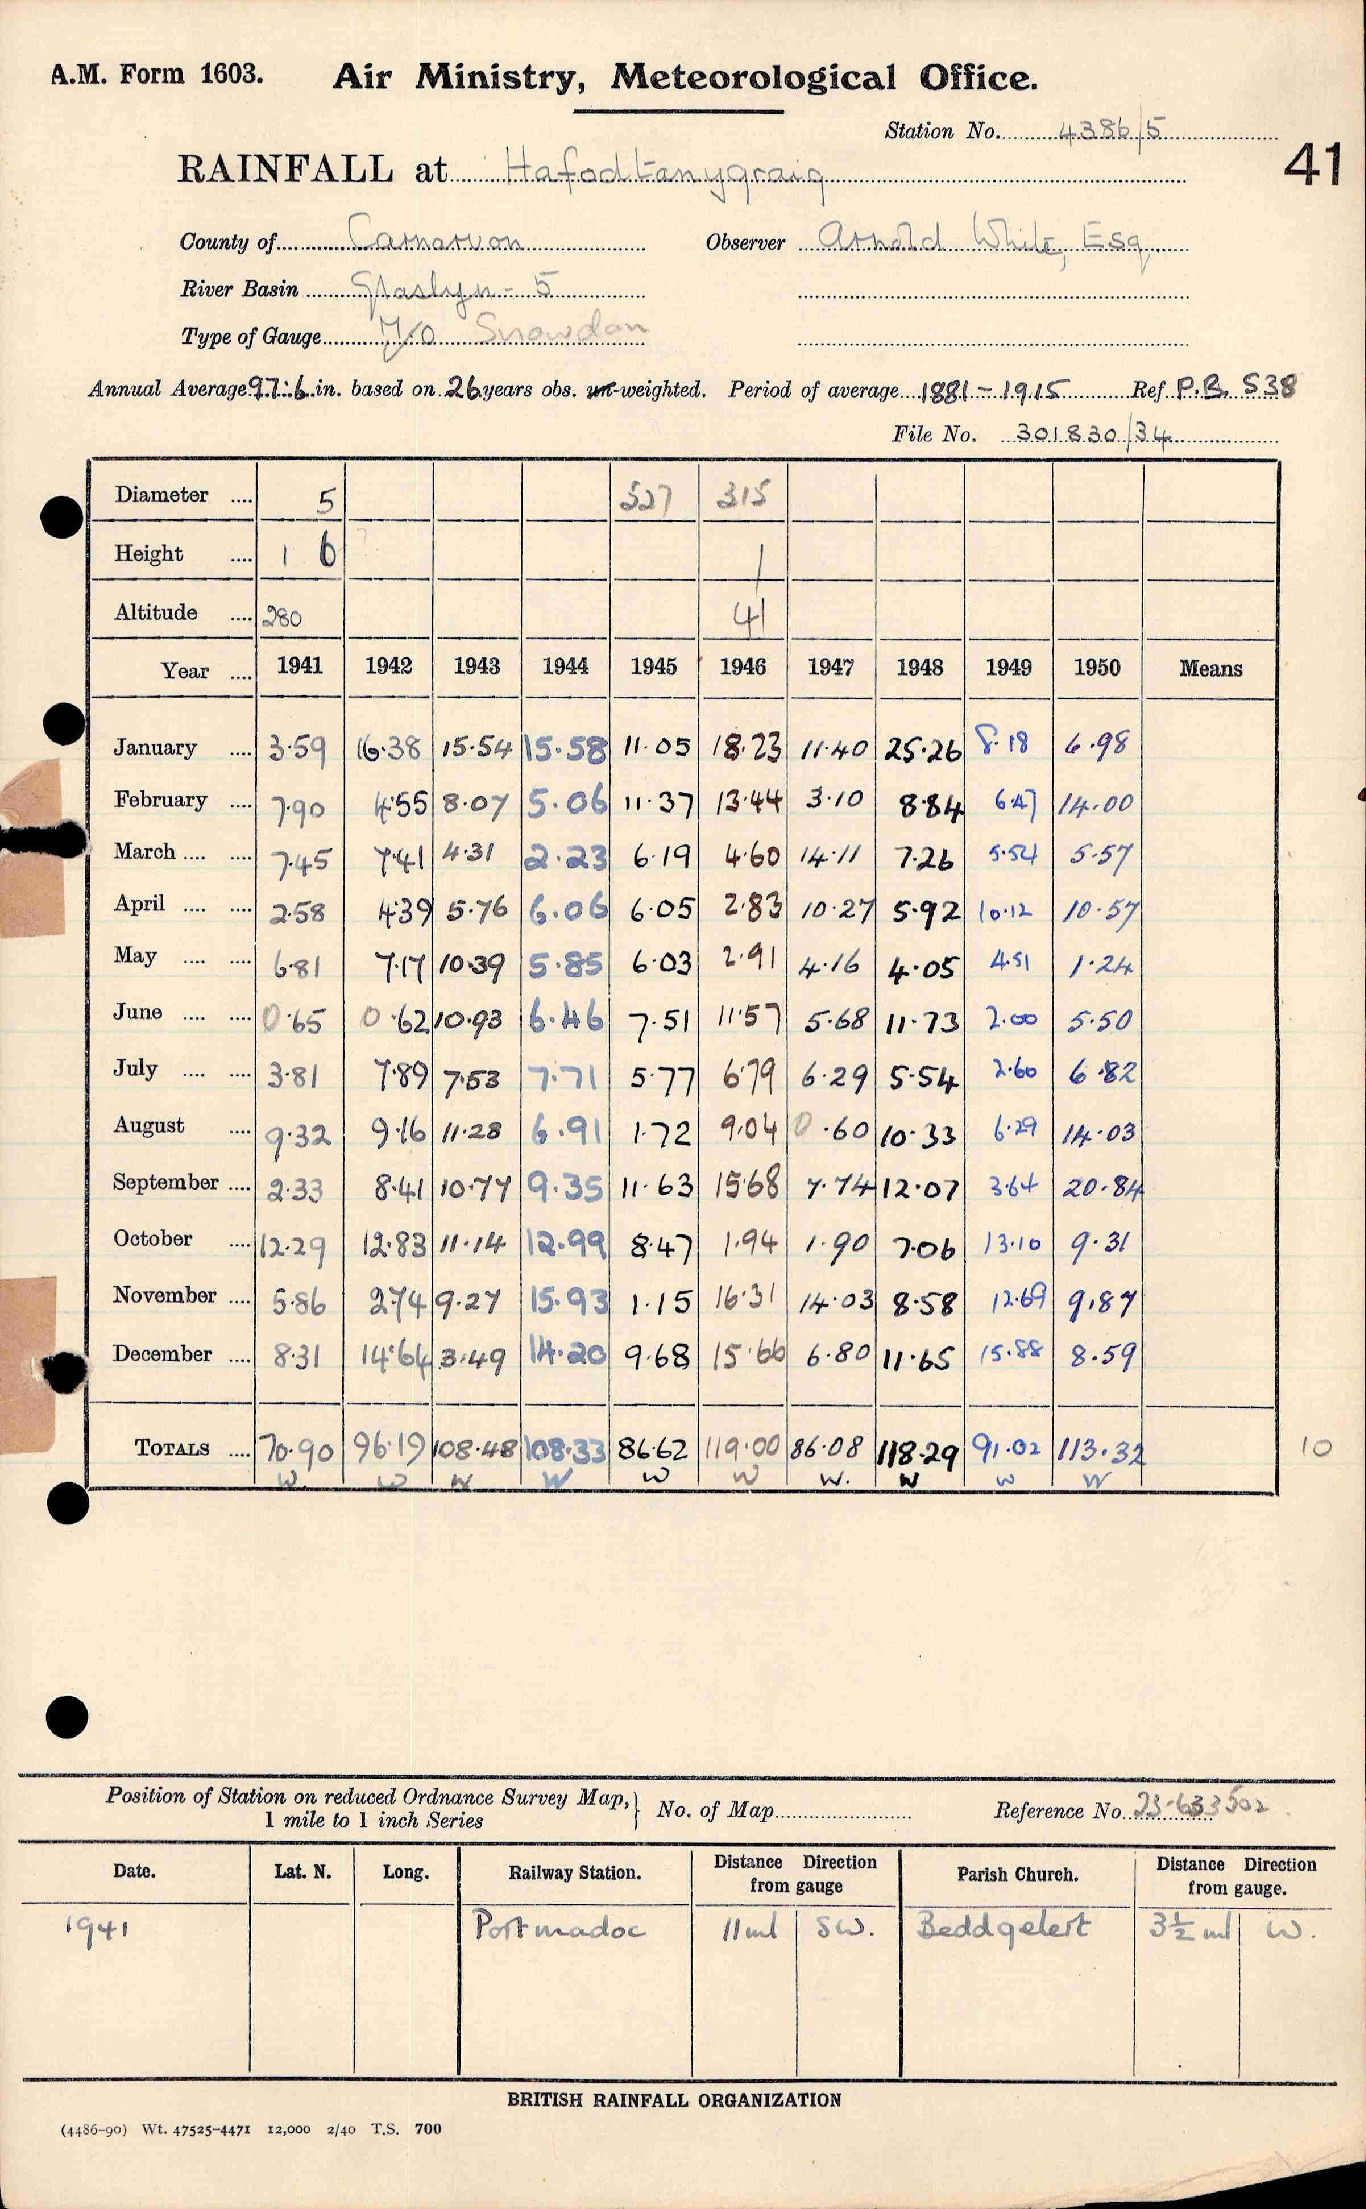 A.M. Form 1603. Air Ministry, Meteorological Office.
Station No. 4386/5
41
RAINFALL at Hafodtanygraig
County of Carnarvon Observer Arnold White, Esq
River Basin Glaslyn - 5
Type of Gauge M/O Snowdon
Annual Average 97.6 in. based on 26 years obs. un-weighted. Period of average 1881 - 1915 Ref P.B. S38
File No. 301830/34
Diameter .... 5 527 315
Height .... 1 6 1
Altitude .... 280 41
Year .... 1941 1942 1943 1944 1945 1946 1947 1948 1949 1950 Means
January .... 3.59 16.38 15.54 15.58 11.05 18.23 11.40 25.26 8.18 6.98
February .... 7.90 4.55 8.07 5.06 11.37 13.44 3.10 8.84 6.47 14.00
March .... .... 7.45 7.41 4.31 2.23 6.19 4.60 14.11 7.26 5.54 5.57
April .... .... 2.58 4.39 5.76 6.06 6.05 2.83 10.27 5.92 10.12 10.57
May .... .... 6.81 7.17 10.39 5.85 6.03 2.91 4.16 4.05 4.51 1.24
June .... .... 0.65 0.62 10.93 6.46 7.51 11.57 5.68 11.73 2.00 5.50
July .... .... 3.81 7.89 7.53 7.71 5.77 6.79 6.29 5.54 2.60 6.82
August .... 9.32 9.16 11.28 6.91 1.72 9.04 0.60 10.33 6.29 14.03
September .... 2.33 8.41 10.77 9.35 11.63 15.68 7.74 12.07 3.64 20.84
October .... 12.29 12.83 11.14 12.99 8.47 1.94 1.90 7.06 13.10 9.31
November .... 5.86 2.74 9.27 15.93 1.15 16.31 14.03 8.58 12.69 9.87
December .... 8.31 14.64 3.49 14.20 9.68 15.66 6.80 11.65 15.88 8.59
TOTALS .... 70.90 96.19 108.48 108.33 86.62 119.00 86.08 118.29 91.02 113.32 10
W. W W W W W W. W W W
Position of Station on reduced Ordnance Survey Map,
1 mile to 1 inch Series } No. of Map Reference No. 23-633502
Date. Lat. N. Long. Railway Station. Distance Direction from gauge Parish Church. Distance Direction from gauge.
1941 Portmadoc 11 ml SW. Beddgelert 3½ ml W.
BRITISH RAINFALL ORGANIZATION
(4486-90) Wt. 47525-4471 12,000 2/40 T.S. 700